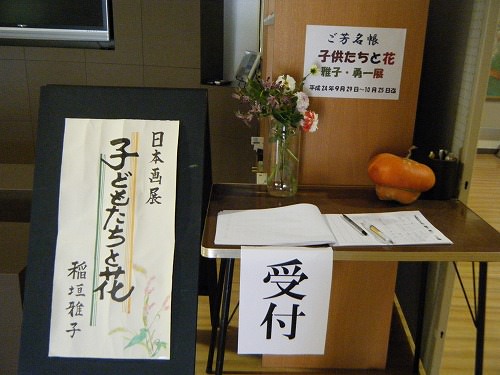 日本画展
子どもたちと花
稲垣雅子
ご芳名帳
子供たちと花
雅子・勇一展
平成24年9月29日～10月25日迄
受付